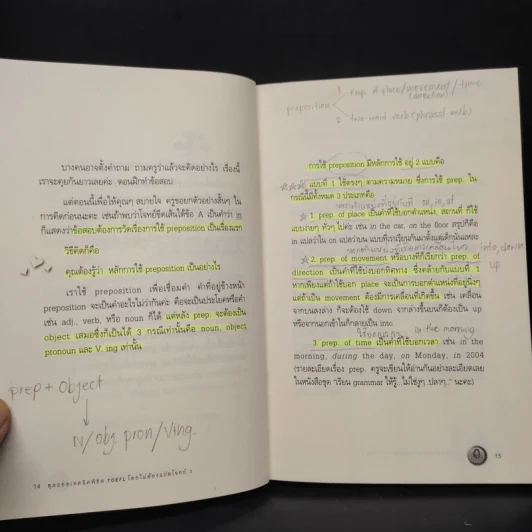 บางคนอาจตั้งคำถาม ถามครูว่าแล้วจะคิดอย่างไร เรื่องนี้
เราจะคุยกันยาวเลยค่ะ ตอนฝึกทำข้อสอบ
แต่ตอนนี้เพื่อให้คุณๆ สบายใจ ครูขอยกตัวอย่างสั้นๆ ใน
การคิดก่อนนะคะ เช่นถ้าพบว่าโจทย์ขีดเส้นใต้ข้อ A เป็นคำว่า in
ก็แสดงว่าข้อสอบต้องการวัดเรื่องการใช้ preposition เป็นเรื่องแรก
วิธีคิดก็คือ
คุณต้องรู้ว่า หลักการใช้ preposition เป็นอย่างไร
เราใช้ preposition เพื่อเชื่อมคำ คำที่อยู่ข้างหน้า
preposition จะเป็นคำอะไรไม่ว่ากันค่ะ คือจะเป็นประโยคหรือคำ
เช่น adj., verb, หรือ noun ก็ได้ แต่หลัง prep. จะต้องเป็น
object เสมอซึ่งก็เป็นได้ 3 กรณีเท่านั้นคือ noun, object
pronoun และ V. ing เท่านั้น
prep + Object
N/obj. pron/Ving.
14 สุดยอดเทคนิคพิชิต TOEFL โดยไม่ต้องแปลโจทย์ 2
1 prep of place/movement/time
(direction)
preposition
2 two-word verb (phrasal verb)
การใช้ preposition มีหลักการใช้ อยู่ 2 แบบคือ
แบบที่ 1 ใช้ตรงๆ ตามความหมาย ซึ่งการใช้ prep. ใน
กรณีนี้มีทั้งหมด 3 ประเภทคือ
on, in, at
1. prep. of place เป็นคำที่ใช้บอกตำแหน่ง, สถานที่ ก็ใช้
แบบง่ายๆ ทั่วๆ ไปค่ะ เช่น in the car, on the floor สรุปก็คือ
in แปลว่าใน on แปลว่าบน แบบที่เราเรียนกันมาตั้งแต่เด็กนั่นแหละ
into, down
up
2. prep. of movement หรือบางทีก็เรียกว่า prep. of
direction เป็นคำที่ใช้บ่งบอกทิศทาง ซึ่งคล้ายกับแบบที่ 1
หากเพียงแต่ถ้าใช้บอก place จะเป็นการบอกตำแหน่งที่อยู่นิ่งๆ
แต่ถ้าเป็น movement ต้องมีการเคลื่อนที่เกิดขึ้น เช่น เคลื่อน
จากบนลงล่าง ก็จะต้องใช้ down จากล่างขึ้นบนก็ต้องเป็น up
หรือจากนอกเข้าในก็กลายเป็น into
ใช้บอกเวลา in the morning
3. prep. of time เป็นคำที่ใช้บอกเวลา เช่น in the
morning, during the day, on Monday, in 2004
(รายละเอียดเรื่อง prep. ครูจะเขียนให้อ่านกันอย่างละเอียดเลย
ในหนังสือชุด "เรียน grammar ให้รู้...ไม่ใช่งูๆ ปลาๆ.." นะคะ)
15